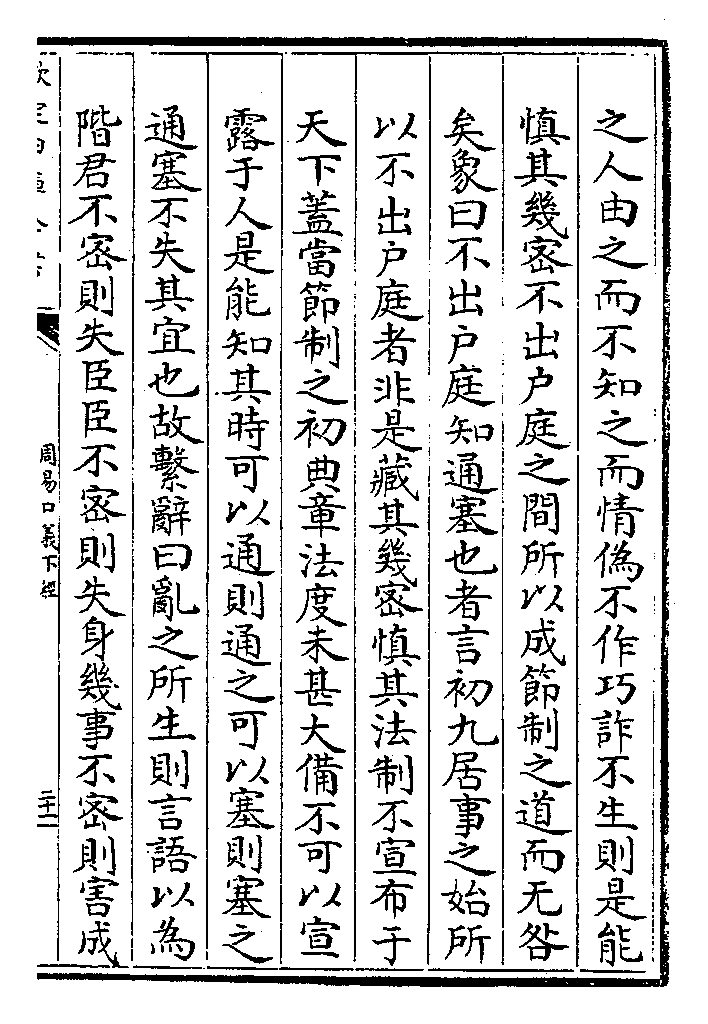 之人由之而不知之而情偽不作巧詐不生則是能
慎其幾密不出户庭之間所以成節制之道而无咎
矣象曰不出户庭知通塞也者言初九居事之始所
以不出户庭者非是藏其幾密慎其法制不宣布于
天下蓋當節制之初典章法度未甚大備不可以宣
露于人是能知其時可以通則通之可以塞則塞之
通塞不失其宜也故繫辭曰亂之所生則言語以為
階君不密則失臣臣不密則失身幾事不密則害成
周易口義下經
二十一